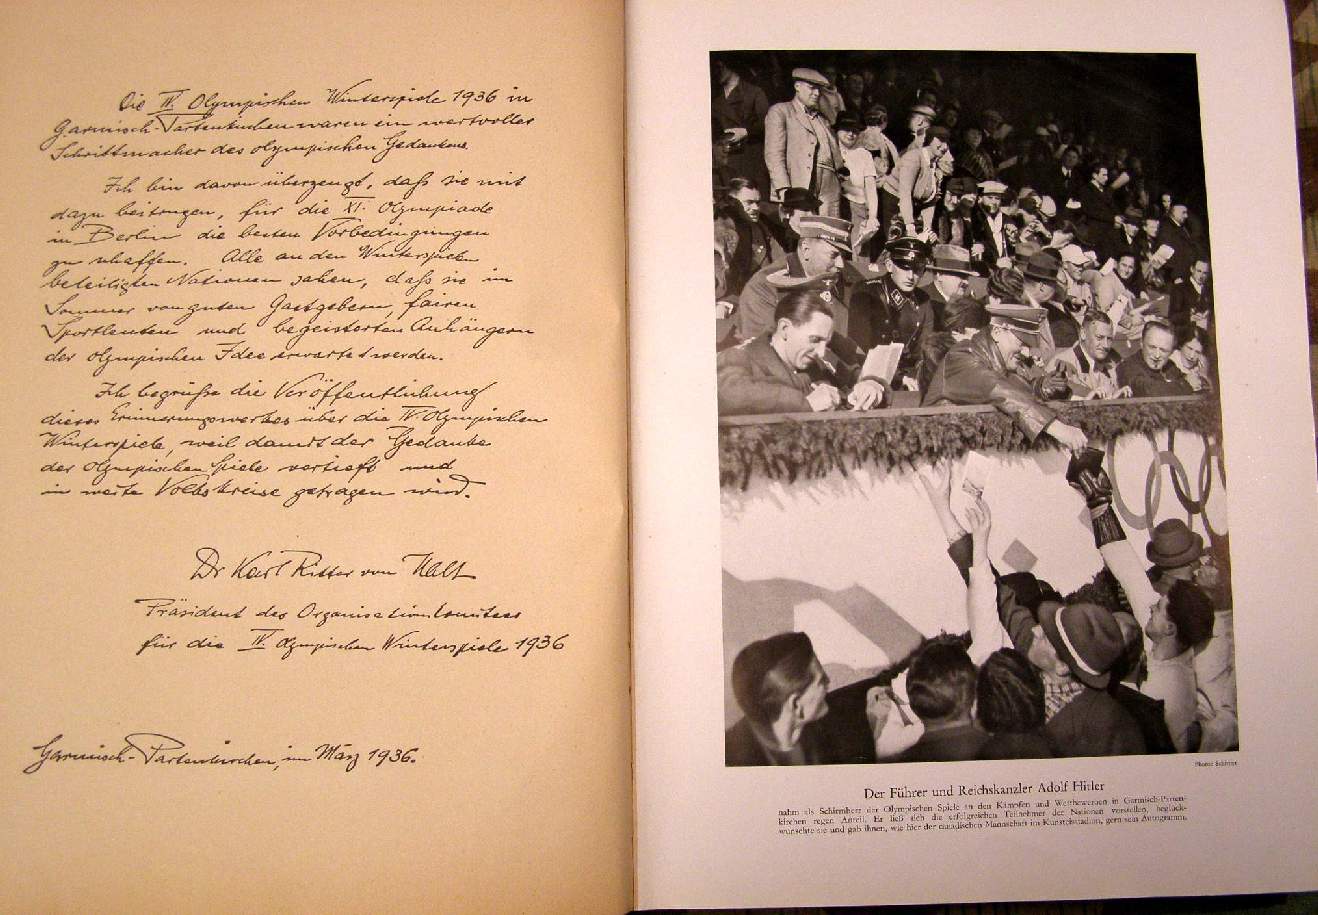 Die IV. Olympischen Winterspiele 1936 in
Garmisch-Partenkirchen waren ein wertvoller
Schrittmacher des olympischen Gedankens.
Ich bin davon überzeugt, daß sie mit
dazu beitragen, für die XI. Olympiade
in Berlin die besten Vorbedingungen
zu schaffen. Alle an den Winterspielen
beteiligten Nationen sahen, daß sie im
Sommer von guten Gastgebern, fairen
Sportleuten und begeisterten Anhängern
der olympischen Idee erwartet werden.
Ich begrüße die Veröffentlichung
dieses Erinnerungswerkes über die IV. Olympischen
Winterspiele, weil damit der Gedanke
der Olympischen Spiele vertieft und
in weite Volkskreise getragen wird.
Dr Karl Ritter von Halt
Präsident des Organisationskomitees
für die IV. Olympischen Winterspiele 1936
Garmisch-Partenkirchen, im März 1936.
Photo: Schirner
Der Führer und Reichskanzler Adolf Hitler
nahm als Schirmherr der Olympischen Spiele an den Kämpfen und Wettbewerben in Garmisch-Parten-
kirchen regen Anteil. Er ließ sich die erfolgreichen Teilnehmer der Nationen vorstellen, beglück-
wünschte sie und gab ihnen, wie hier der canadischen Mannschaft im Kunsteisstadion, gern sein Autogramm.